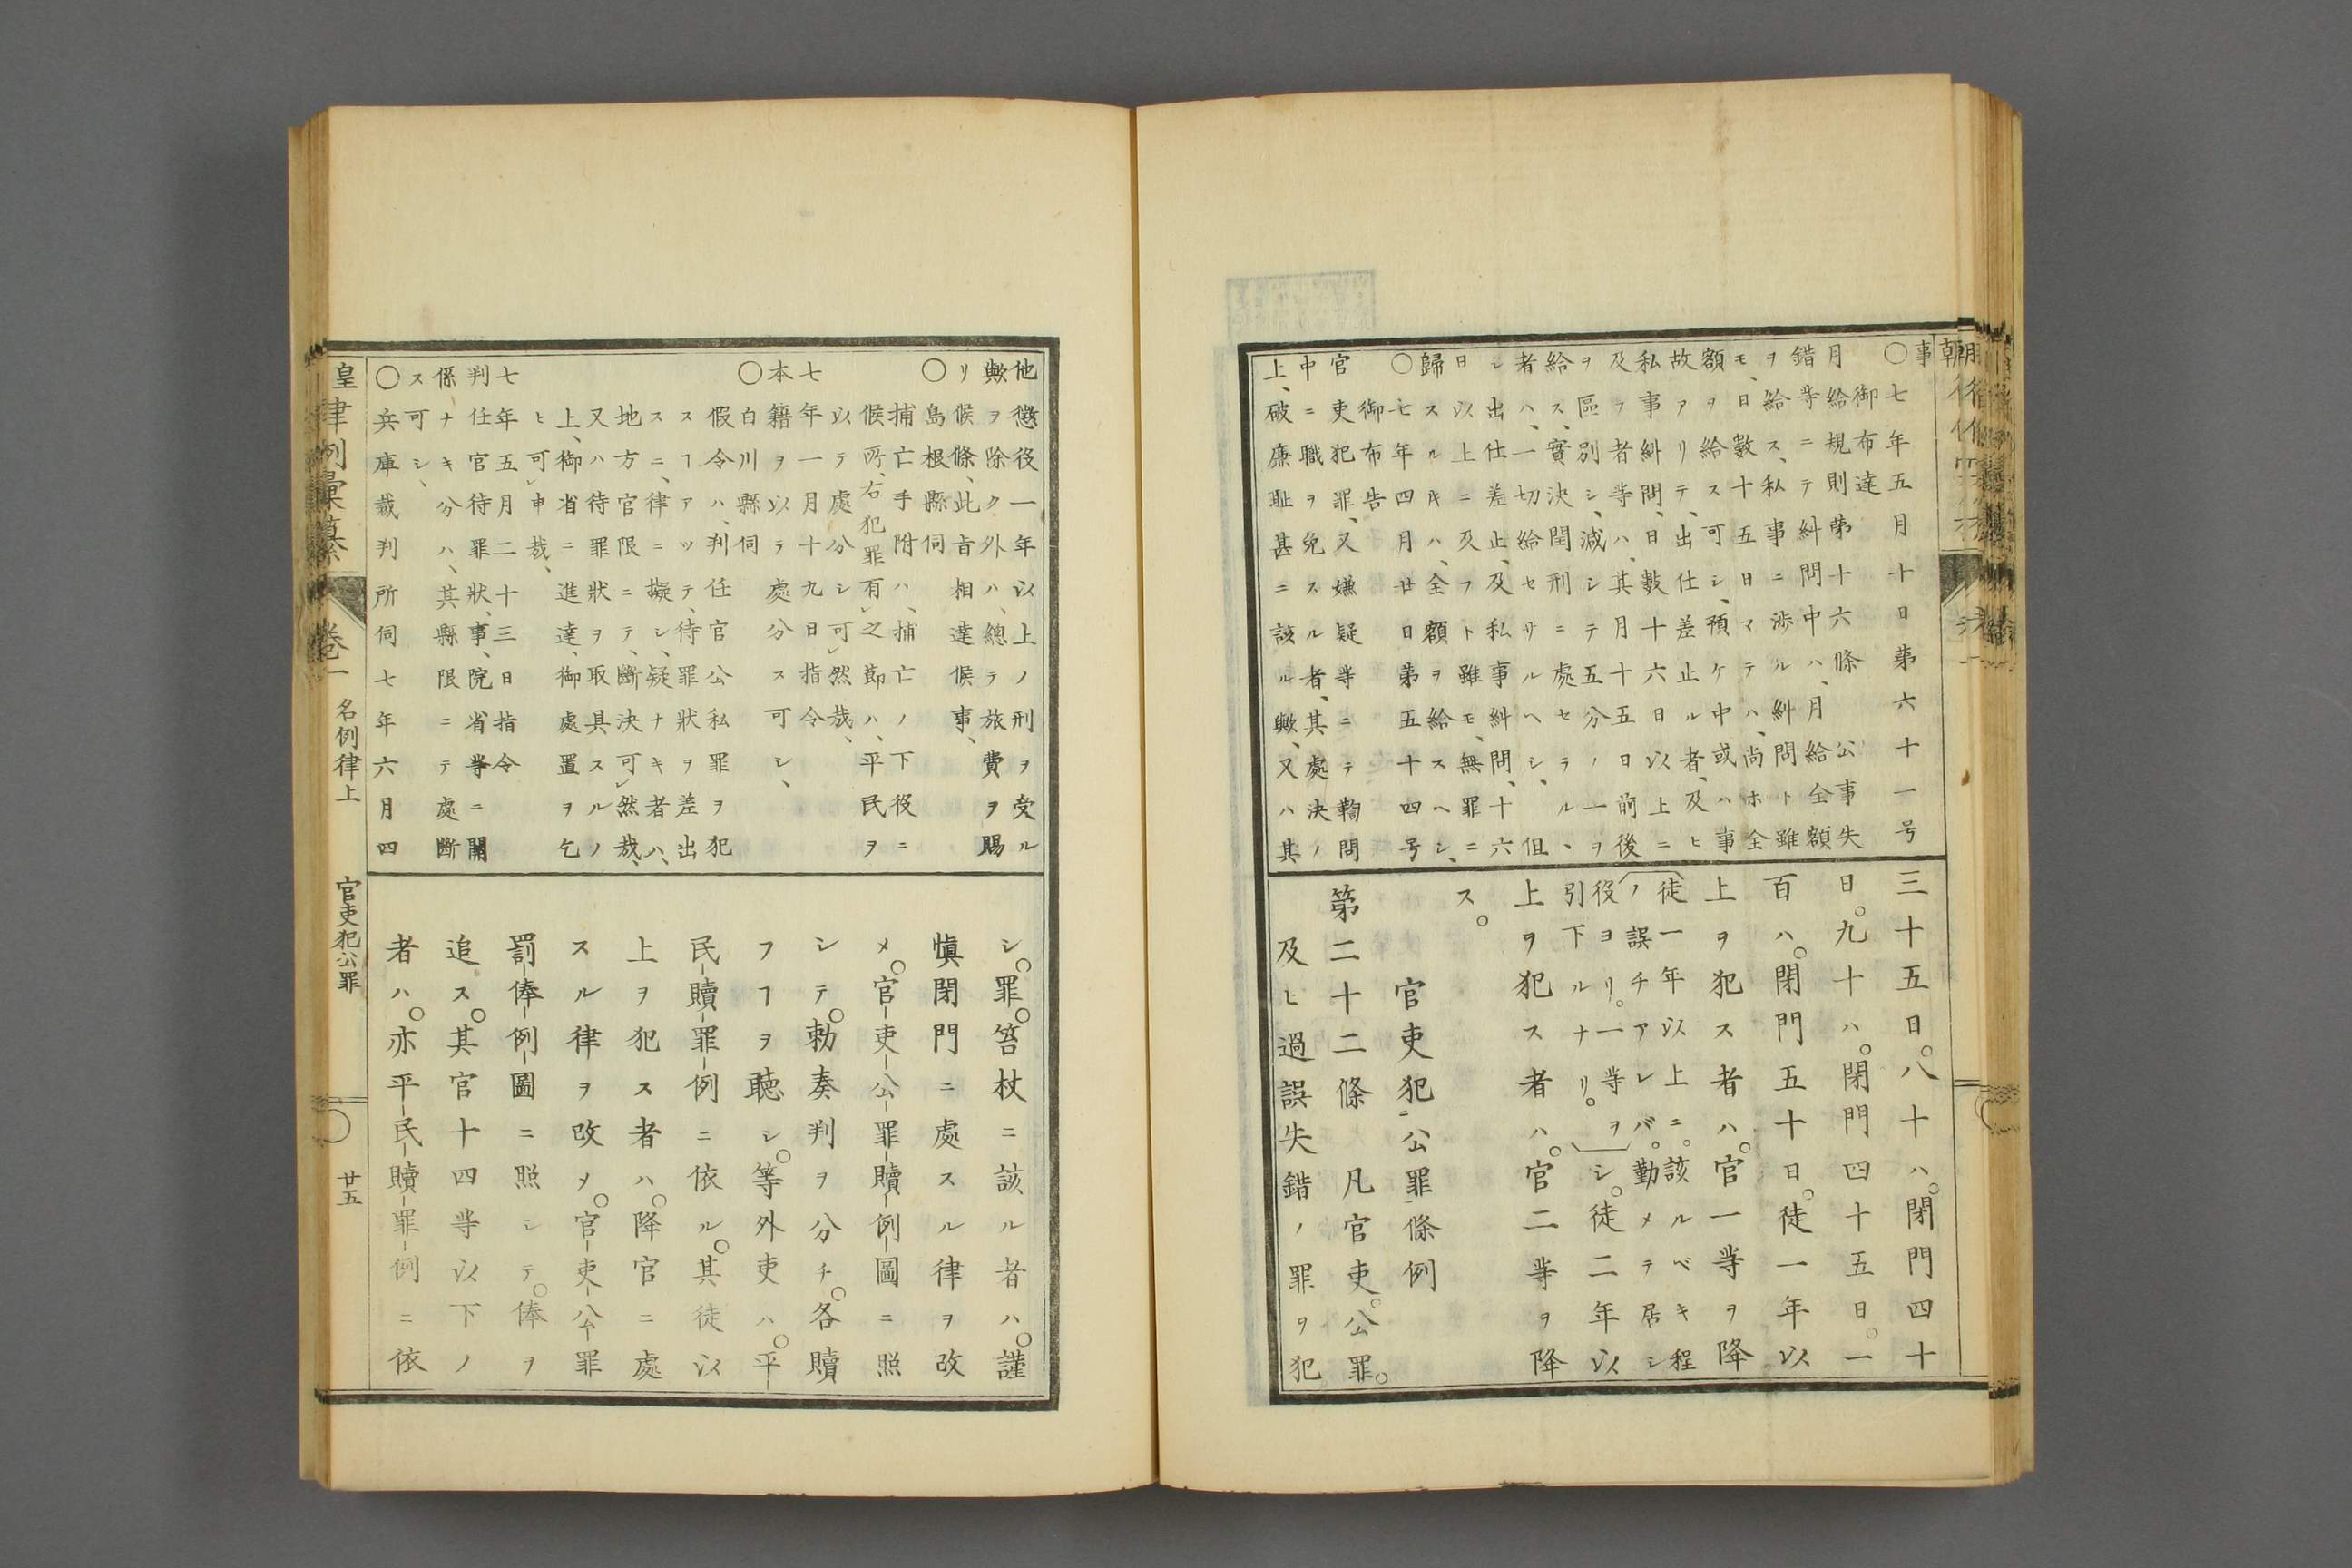 事
○七年五月十日第六十一号
御布達
月給規則第十六條 公事失
錯等ニテ糾問中ハ、月給全額
ヲ給ス、私事ニ渉ル糾問ト雖
モ、日數十五日マテハ、尚ホ全
額ヲ給ス可シ、預ケ中或ハ事
故アリテ、出仕差止ル者、及ヒ
私事糾問、日數十六日以上ニ
及フ者等ハ、其月十五日前後
ヲ區別シ、減シテ五分ノ一ヲ
給ス、實決閏刑ニ處セラルヽ
者ハ、一切給セサルヘシ、但
シ出仕差止、及私事糾問、十六
日以上ニ及フト雖モ、無罪ニ
歸スルキハ、全額ヲ給スヘシ、
○七年四月廿日第五十四号
御布告
官吏犯罪、又嫌疑等ニテ鞫問
中ニ職ヲ免スル者、其處決ノ
上、破廉耻甚ニ該ル歟、又ハ其
三十五日。八十ハ。閉門四十
日。九十ハ。閉門四十五日。一
百ハ。閉門五十日。徒一年以
上ヲ犯ス者ハ。官一等ヲ降
徒一年以上ニ。該ルベキ程
ノ誤チアレバ。勤メテ居シ
役ヨリ。一等ヲ
引下ルナリ。
シ。徒二年以
上ヲ犯ス者ハ。官二等ヲ降
ス。
官吏犯ニ公罪一條例
第二十二條 凡官吏。公罪。
及ヒ過誤失錯ノ罪ヲ犯
他懲役一年以上ノ刑ヲ受ル
歟ヲ除ク外ハ、總テ旅費ヲ賜
リ候條、此旨相達候事、
○島根縣伺
捕亡手附ハ、捕亡ノ下役ニ
候所、右犯罪有レ之節ハ、平民ヲ
以テ處分シ可レ然哉、
七年一月十九日指令
本籍ヲ以テ處分ス可シ、
○白川縣伺
假令ハ、判任官公私罪ヲ犯
スヿアツテ、待罪狀ヲ差出
スニ、律ニ擬シ、疑ナキ者ハ、
地方官限ニテ、斷決可レ然哉、
又ハ待罪狀ヲ取具スルノ
上、御省ニ進達、御處置ヲ乞
ヒ可レ申哉、
七年五月二十三日指令
判任官待罪狀、事、院省等ニ關
係ナキ分ハ、其縣限ニテ處斷
ス可シ、
○兵庫裁判所伺七年六月四
シ。罪。笞杖ニ該ル者ハ。謹
愼閉門ニ處スル律ヲ改
メ。官吏公罪贖例圖ニ照
シテ。勅奏判ヲ分チ。各贖
フヿヲ聽シ。等外吏ハ。平
民贖罪例ニ依ル。其徒以
上ヲ犯ス者ハ。降官ニ處
スル律ヲ改メ。官吏公罪
罰俸例圖ニ照シテ。俸ヲ
追ス。其官十四等以下ノ
者ハ。亦平民贖罪例ニ依
皇律例彙纂 卷一 名例律上 官吏犯公罪 廿五